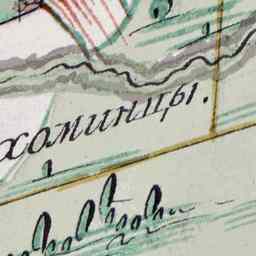 хоминцы.